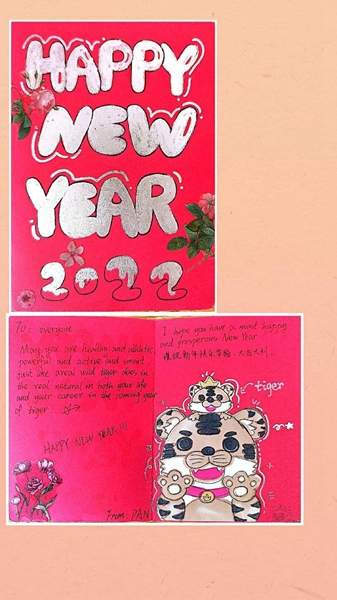 HAPPY
NEW
YEAR
2022
To: everyone
May you are healthy and athletic
powerful and active and smart
just like areal wild tiger does in
the real natural in both your life
and your career in the coming year
of tiger
HAPPY NEW YEAR!!!
From: PAN
I hope you have a mind happy
and prosperous New Year
谨祝新年快乐幸福，大吉大利.
tiger